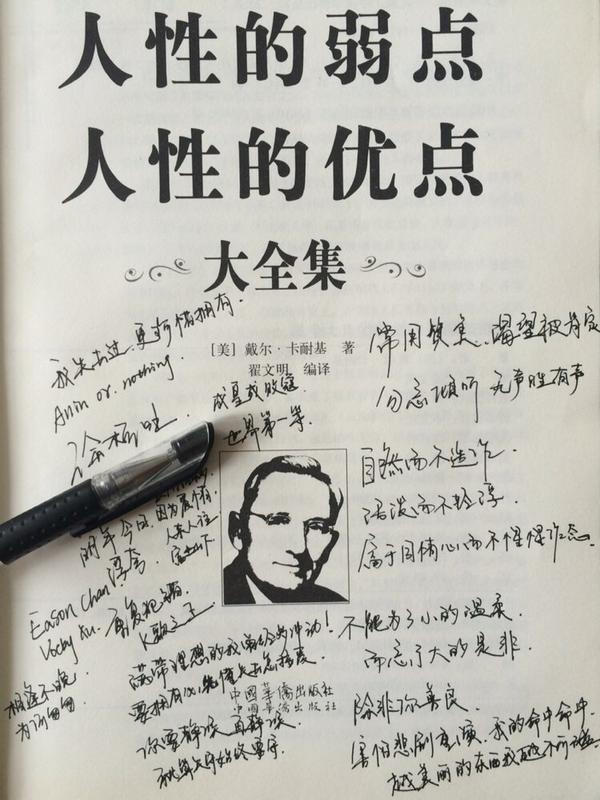 人性的弱点
人性的优点
大全集
[美] 戴尔·卡耐基 著
翟文明 编译
我失去过,更珍惜拥有.
Anin or. nothing.
成王或败寇
世界第一等.
因为爱情
人来人往
富士山下
明年今日.
浮夸
Eason Chan!
K歌之王
相逢不晚
为何匆匆
满带理想的我曾经多冲动!
要拥有必先懂失去怎接受
你要静候 再静候
就算失收始终要守
中国华侨出版社
常用
渴望被肯定
勿忘倾听 无声胜有声
自然而不造作.
活泼而不轻浮.
属于自情心而不惺惺作态
不能为了小的温柔
而忘了大的是非.
除非你善良.
害怕悲剧重演.我的命中命中.
越美丽的东西我越不可碰.